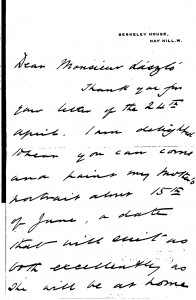 BERKELEY HOUSE,
HAY HILL. W.
Dear Monsieur László
Thank you for
your letter of the 24th
April. I am delighted
when you can come
and paint my mother's
portrait about 15th
of June, a date
that will suit us
both excellently as
she will be at home